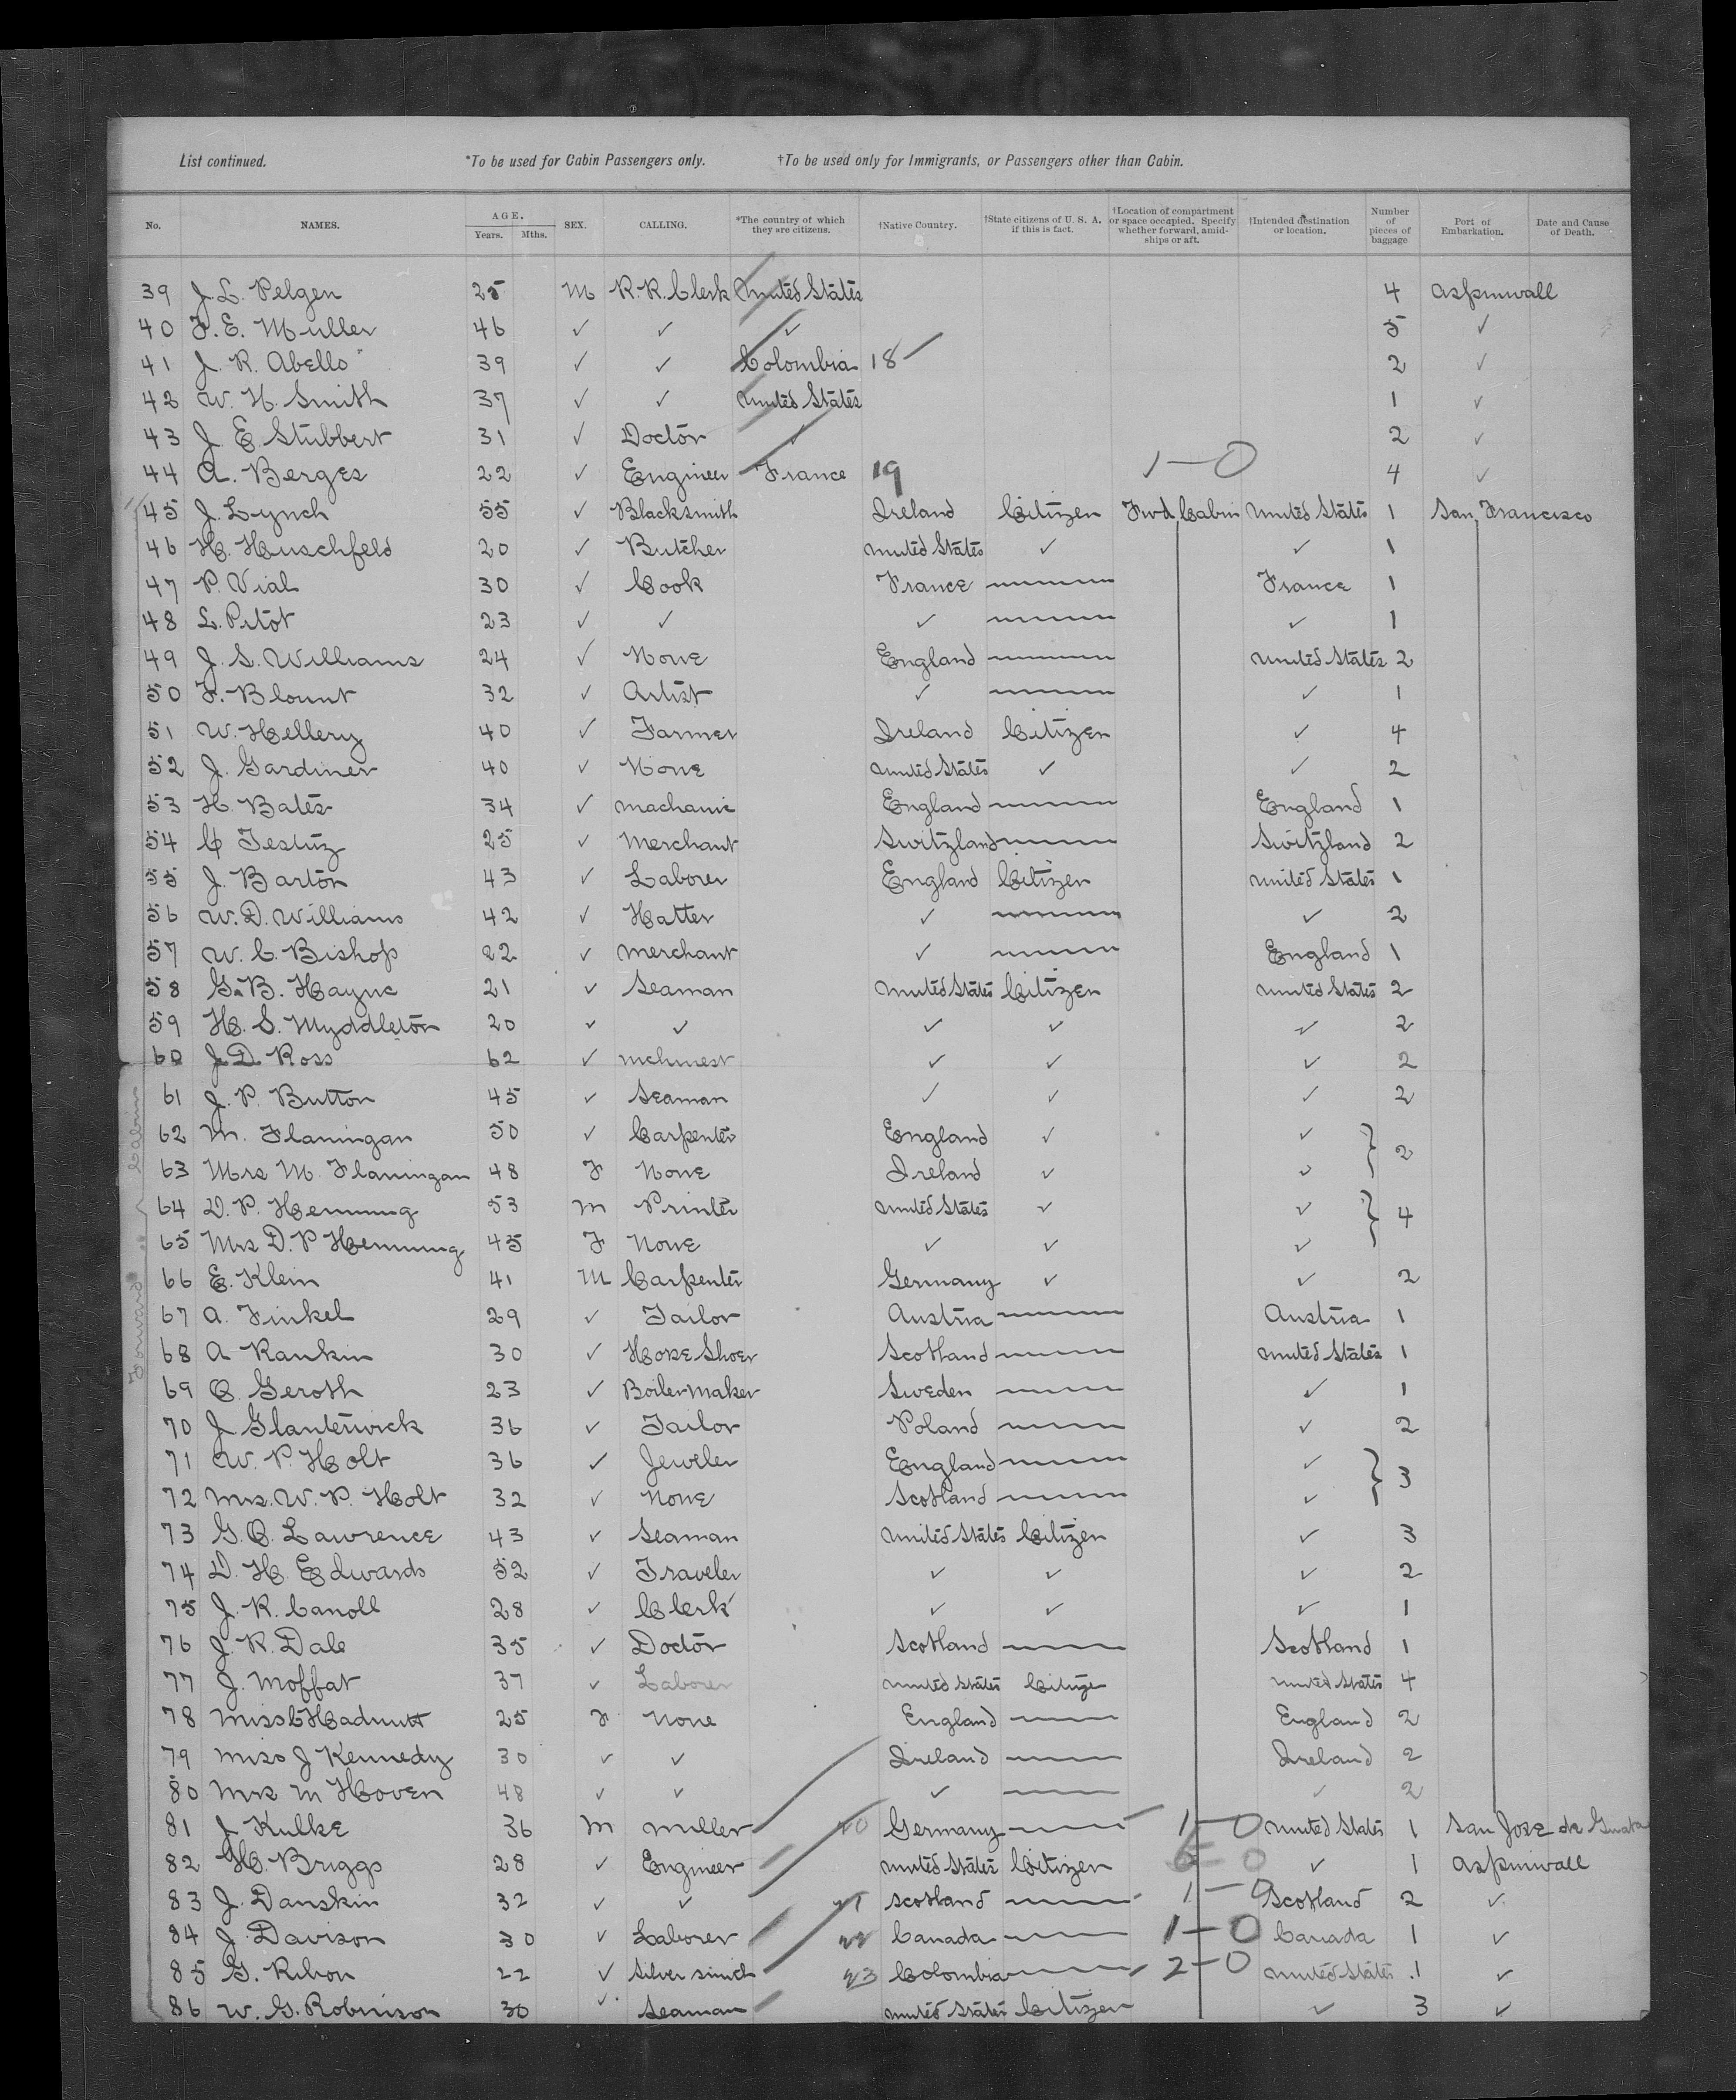 List continued. *To be used for Cabin Passengers only. †To be used only for Immigrants, or Passengers other than Cabin.
No. NAMES. AGE. Years. Mths. SEX. CALLING. *The country of which they are citizens. †Native Country. †State citizens of U. S. A. if this is fact. †Location of compartment or space occupied. Specify whether forward, amidships or aft. †Intended destination or location. Number of pieces of baggage Port of Embarkation. Date and Cause of Death.
39 J. L. Pelgen 25 M R. R. Clerk United States 4 Aspinwall
40 F. E. Muller 46 ✓ ✓ ✓ 5 ✓
41 J. R. Abello 39 ✓ ✓ Colombia 18 2 ✓
42 W. H. Smith 37 ✓ ✓ United States 1 ✓
43 J. E. Stubbert 31 ✓ Doctor ✓ 2 ✓
44 A. Berges 22 ✓ Engineer France 19 1—0 4 ✓
45 J. Lynch 55 ✓ Blacksmith Ireland Citizen Fwd Cabin United States 1 San Francisco
46 H. Huschfeld 20 ✓ Butcher United States ✓ ✓ 1
47 P. Vial 30 ✓ Cook France — France 1
48 L. Pitot 23 ✓ ✓ ✓ — ✓ 1
49 J. S. Williams 24 ✓ None England — United States 2
50 F. Blount 32 ✓ Artist ✓ — ✓ 1
51 W. Hellery 40 ✓ Farmer Ireland Citizen ✓ 4
52 J. Gardiner 40 ✓ None United States ✓ ✓ 2
53 H. Bates 34 ✓ Machanic England — England 1
54 C Testuz 25 ✓ Merchant Switzland — Switzland 2
55 J. Barton 43 ✓ Laborer England Citizen United States 1
56 W. D. Williams 42 ✓ Hatter ✓ — ✓ 2
57 W. C. Bishop 22 ✓ Merchant ✓ — England 1
58 G. B. Hayne 21 ✓ Seaman United States Citizen United States 2
59 H. S. Myddleton 20 ✓ ✓ ✓ ✓ ✓ 2
60 J. D. Ross 62 ✓ ✓ ✓ ✓ 2
61 J. P. Button 45 ✓ Seaman ✓ ✓ ✓ 2
62 M. Flaningan 50 ✓ Carpenter England ✓ ✓
63 Mrs M. Flaningan 48 F None Ireland ✓ ✓ } 2
64 D. P. Hennung 53 M Printer United States ✓ ✓
65 Mrs D. P Hennung 45 F None ✓ ✓ ✓ } 4
66 E. Klein 41 M Carpenter Germany ✓ ✓ 2
67 A. Finkel 29 ✓ Tailor Austria — Austria 1
68 A Rankin 30 ✓ Horse Shoer Scotland — United States 1
69 O. Geroth 23 ✓ Boilermaker Sweden — ✓ 1
70 J Glanterwick 36 ✓ Tailor Poland — ✓ 2
71 W. P. Holt 36 ✓ Jeweler England — ✓
72 Mrs. W. P. Holt 32 ✓ None Scotland — ✓ } 3
73 G. O. Lawrence 43 ✓ Seaman United States Citizen ✓ 3
74 D. H. Edwards 52 ✓ Traveler ✓ ✓ ✓ 2
75 J. R. Canoll 28 ✓ Clerk ✓ ✓ ✓ 1
76 J. R. Dale 35 ✓ Doctor Scotland — Scotland 1
77 J. Moffat 37 ✓ Laborer United States Citize United States 4
78 Miss C Hadnutt 25 F None England — England 2
79 Miss J Kennedy 30 ✓ ✓ Ireland — Ireland 2
80 Mrs M Hoven 48 ✓ ✓ ✓ — ✓ 2
81 J Kulke 36 M Miller 20 Germany — 1—0 United States 1 San Jose de Guata
82 H. Briggs 28 ✓ Engineer United States Citizen ✓ 1 Aspinwall
83 J. Danskin 32 ✓ ✓ 21 Scotland — 1—0 Scotland 2 ✓
84 J. Davison 30 ✓ Laborer 22 Canada — 1—0 Canada 1 ✓
85 G. Ribon 22 ✓ Silver smith 23 Colombia — 2—0 United States 1 ✓
86 W. G. Robinson 30 ✓ Seaman United States Citizen ✓ 3 ✓
Forward Cabin